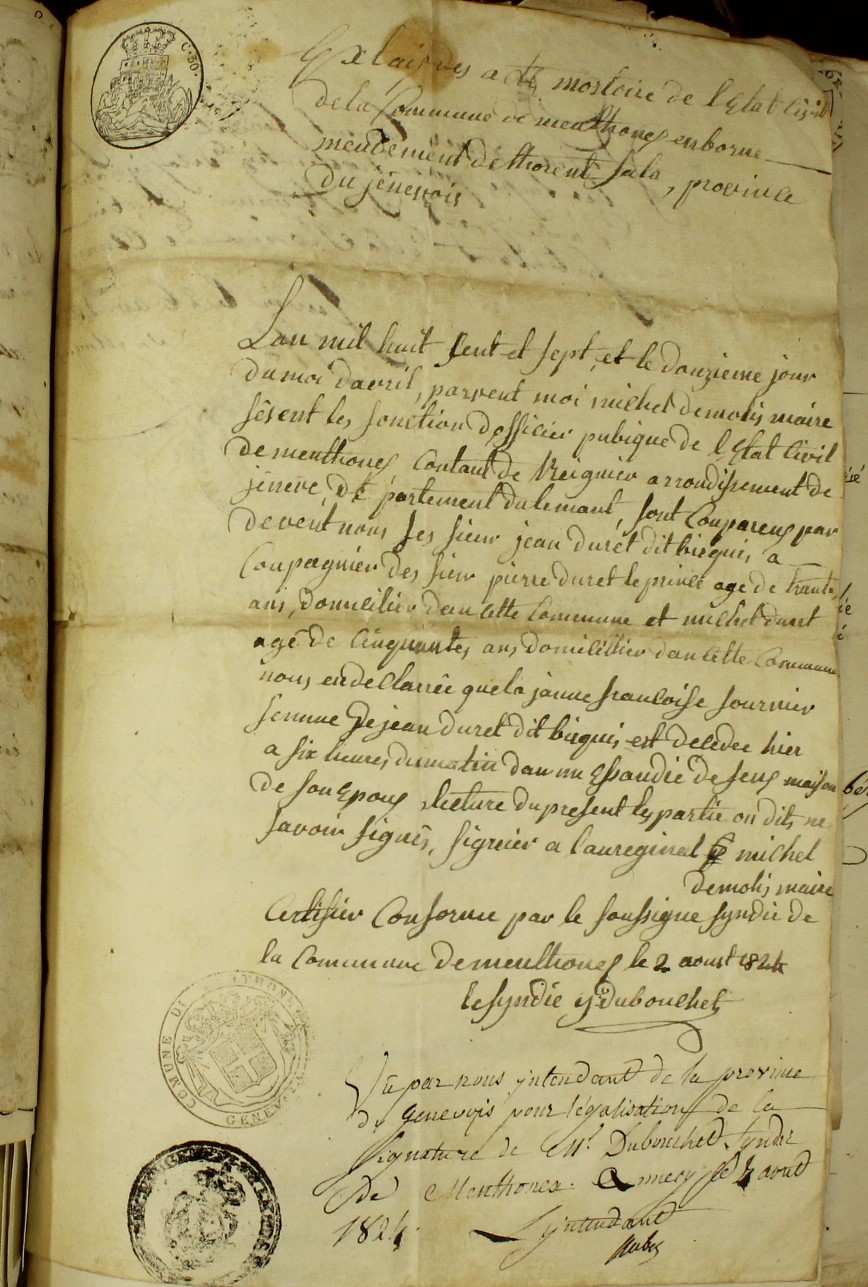 C. 30.
Extair des acte mortoire de l'Etat Civil
de la Commune de menthonex en borne
mendement de thorent Sala, province
Du jénevois
Lan mil huit sent et sept, et le douzieme jour
du moi davril, parvent moi michel demolis maire
fesent les fonction d'officier pubique de l'Etat Civil
de menthonex Contant de Reignier arrondisement de
jeneve, dé partement du lemant, sont Conparens par
devent nous les sieur jean duret dit bieguis a
Conpagnier des sieur pierre duret le prince age de trante
ans, domicilier dan cette Commune et michel duret
agé de cinquantes ans domicillier dan cette Commune
nous en declarrée que la janne francoise fournier
femme de jean duret dit bieguis est decedee hier
a six heures du matin dan une de seus maison
de son epoux lecture du present les partie on dits ne
savoir signés, signier a l'aureginal michel
demolis maire
Certifier Conforme par le soussigne syndic de
la Commune de menthonex le 2 aoust 1824
le syndic Dubouchet
COMUNE DI
GENEV
Vu par nous jntendant de la province
de genevois pour légalisation de la
signature de Mr. Dubouchet syndic
de Menthonex. Annecy le 4 aout
1824.
L'jntendant